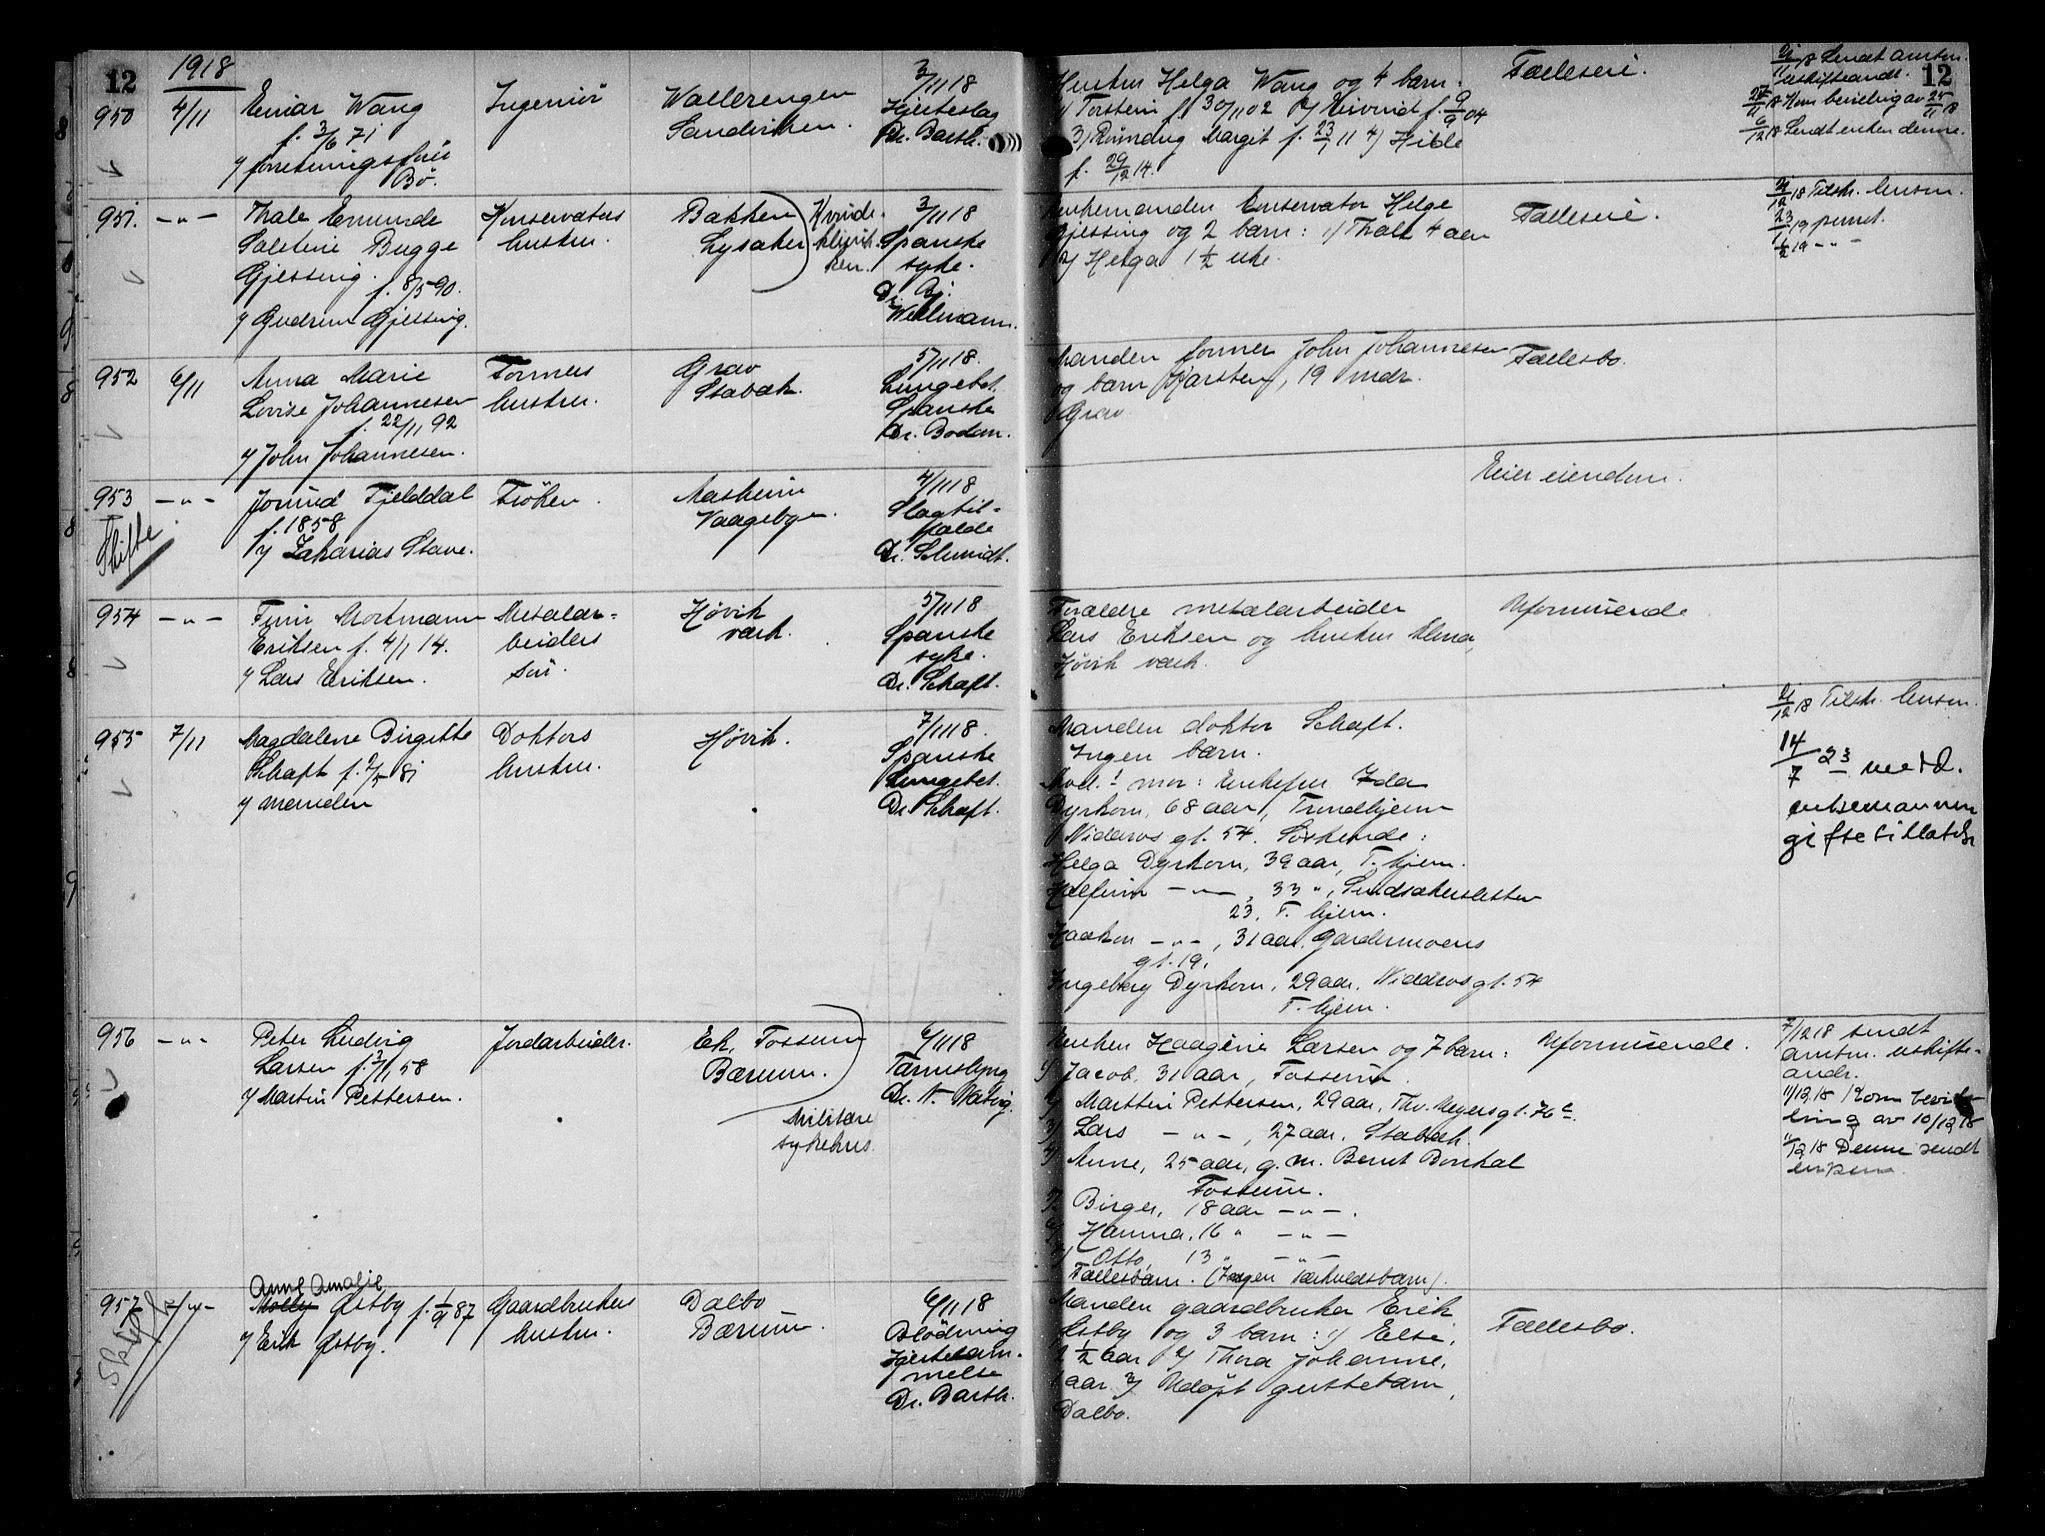 12
1918
950
4/11
Einar Wang
f. 3/6 71
y forretningsfører
Bø.
Ingeniør
Vallerengen
Sandviken.
3/11 18
Hjerteslag
Dr. Barth.
Enken Helga Wang og 4 barn:
1/ Torstein f. 30/11 02 2/ Eivind f. 9/9 04
3/ Rønnaug Margit f. 23/1 11 4/ Hilde
f. 29/12 14.
Fælleseie.
Sendt amtm.
uskifteandr.
12
27/11 18 Kom bevilling av 25/11 18
6/12 18 Sendt enken denne.
951.
-"-
Thale Emunde
Salstine Bugge
Gjessing. f. 8/5 90.
y Gudrun Gjessing.
Konservators
hustru.
Bakken
Lysaker
Kvindeklinikken.
3/11 18
Spanske
syke.
Dr. Bj.
Wellmann.
Enkemanden konservator Helge
Gjessing og 2 barn: 1/ Thale 4 aar
2/ Helga 1 1/2 uke.
Fælleseie.
2/12 18 Tilskr. lensm.
23/1 19 purret.
1/2 19 -"-
952
6/11
Anna Marie
Lovise Johannesen
f. 22/11 92
y John Johannesen.
Formers
hustru.
Grav
Stabæk.
5/11 18.
Lungebet.
Spanske
Dr. Bodom.
Manden former John Johannesen
og barn Karsten, 19 mdr.
Grav
Fællesbo.
953
-"-
Skifte.
Jorund Fjelddal
f. 1858
y Zakarias Stave.
Frøken.
Aasheim
Vaagebyen.
4/11 18
Slagtilfælde
Dr. Schmidt.
Eier eiendom.
954
-"-
Finn Mortmann
Eriksen f. 4/1 14.
y Lars Eriksen.
Metalarbeiders
søn.
Høvik
verk.
5/11 18
Spanske
syke.
Dr. Schaft.
Forældre metalarbeider
Lars Eriksen og hustru Elena,
Høvik verk.
Uformuende
955
7/11
Magdalene Birgitte
Schaft f. 2/5 81
y manden
Doktors
hustru.
Høvik.
7/11 18.
Spanske
Lungebet.
Dr. Schaft.
Manden doktor Schaft.
Ingen barn.
Avd.! mor: Enkefru Ida
Dyrkorn, 68 aar, Trondhjem
Nidaros gt. 54. Søskende:
Helga Dyrkorn, 39 aar, T.hjem.
Halfinn -"-, 33 ",
23, T.hjem.
Haakon -"-, 31 aar. Gardermoens
gt. 19.
Ingeborg Dyrkorn, 29 aar. Nidarosgt. 54
T.hjem.
2/12 18 Tilskr. lensm.
14/7 23 medd.
enkemannen
giftetillatelse
956
-"-
Peter Ludvig
Larsen f. 3/1 58
y Martin Pettersen.
Jordarbeider.
Ek, Fossum
Bærum.
Militære
sykehus.
6/11 18
Tarmslyng
Dr. N. Natvig.
Enken Haagine Larsen og 7 barn:
1/ Jacob, 31 aar, Fossum.
2/ Marttin Pettersen, 29 aar, Thv. Meyersgt. 76 c.
3/ Lars -"-, 27 aar. Stabæk.
4/ Anne, 25 aar, g.m. Bernt Bonkal
Fossum.
5/ Birger, 18 aar -"-.
6/ Hanna, 16 " -"-
7/ Otto, 13 " -"-
Fællesbarn. (Ingen særkuldsbarn).
Uformuende.
7/12 18 sendt
amtm. uskifteandr.
11/12 18 Kom bevilling
av 10/12 18
11/12 18 Denne sendt
enken.
957
-"-
Skifte
Anne Amalie
Molly Østby f. 1/9 87
y Erik Østby.
Gaardbrukers
hustru.
Dalbo
Bærum.
6/11 18
Blødning
Hjertelammelse
Dr. Barth.
Manden gaardbruker Erik
Østby og 3 barn: 1/ Else,
2 1/2 aar 2/ Thora Johanne,
1 aar 3/ Udøpt guttebarn,
Dalbo.
Fællesbo.